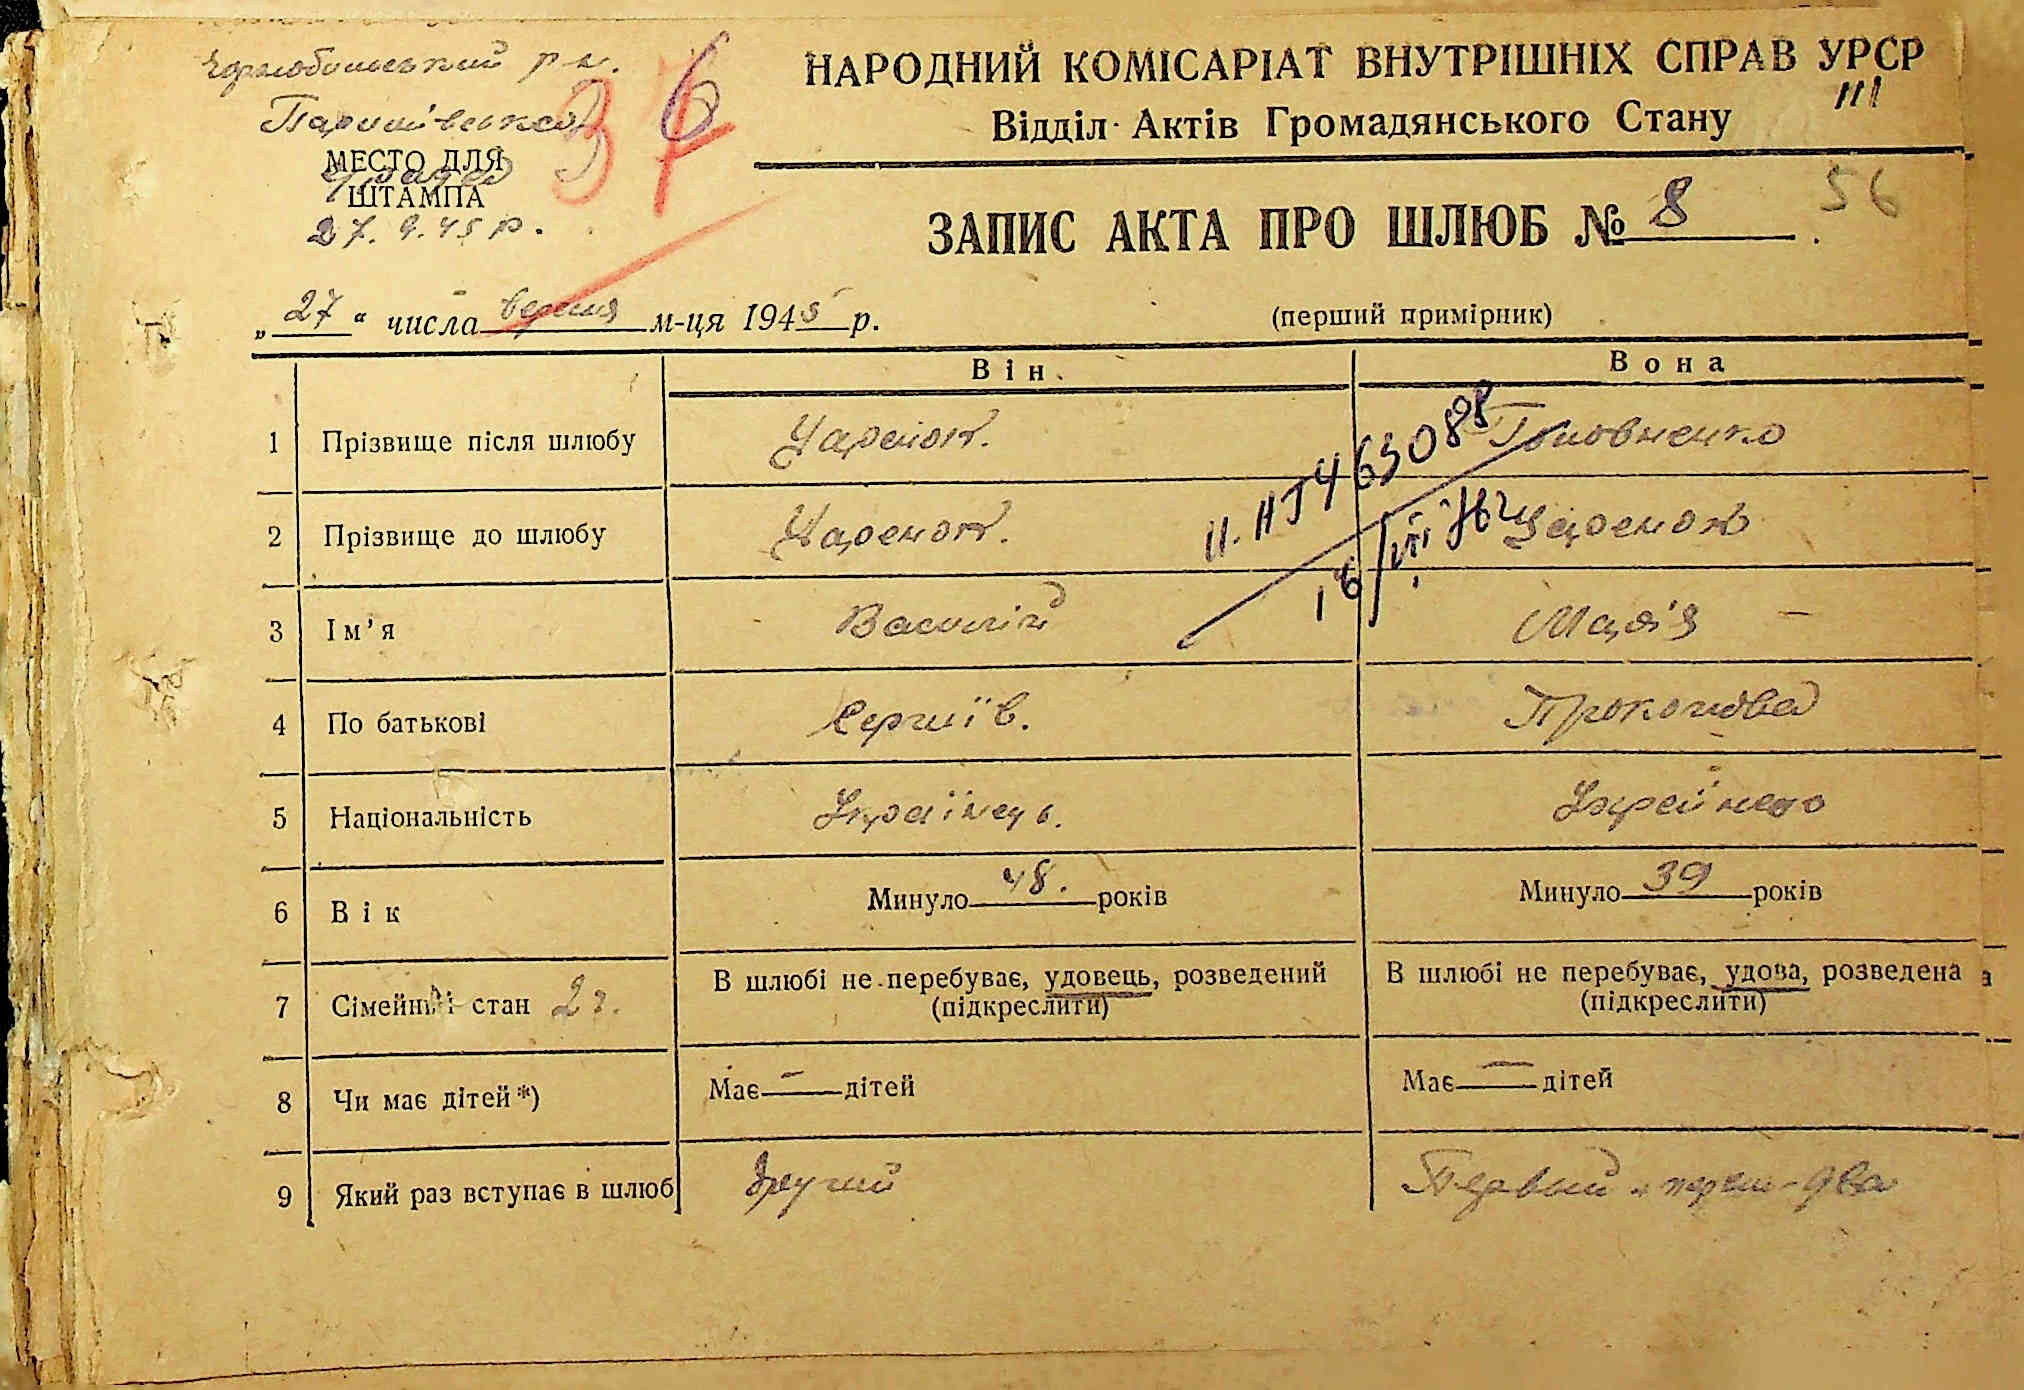 Чорнобильський р-н.
Паришівська
МЕСТО ДЛЯ
ШТАМПА
27.9.45 р.
37
6
НАРОДНИЙ КОМІСАРІАТ ВНУТРІШНІХ СПРАВ УРСР
Відділ Актів Громадянського Стану
ЗАПИС АКТА ПРО ШЛЮБ № 8
56
„27“ числа вересня м-ця 1945 р.
(перший примірник)
Він
Вона
1 Прізвище після шлюбу Царенок. Головненко
2 Прізвище до шлюбу Царенок. Царенок
3 Ім’я Василій Марія
4 По батькові Сергиїв. Прокопова
5 Національність Українець.
6 Вік Минуло 48. років Минуло 39 років
7 Сімейний стан 2г. В шлюбі не перебуває, удовець, розведений В шлюбі не перебуває, удова, розведена
(підкреслити) (підкреслити)
8 Чи має дітей*) Має — дітей Має — дітей
9 Який раз вступає в шлюб другий Первый